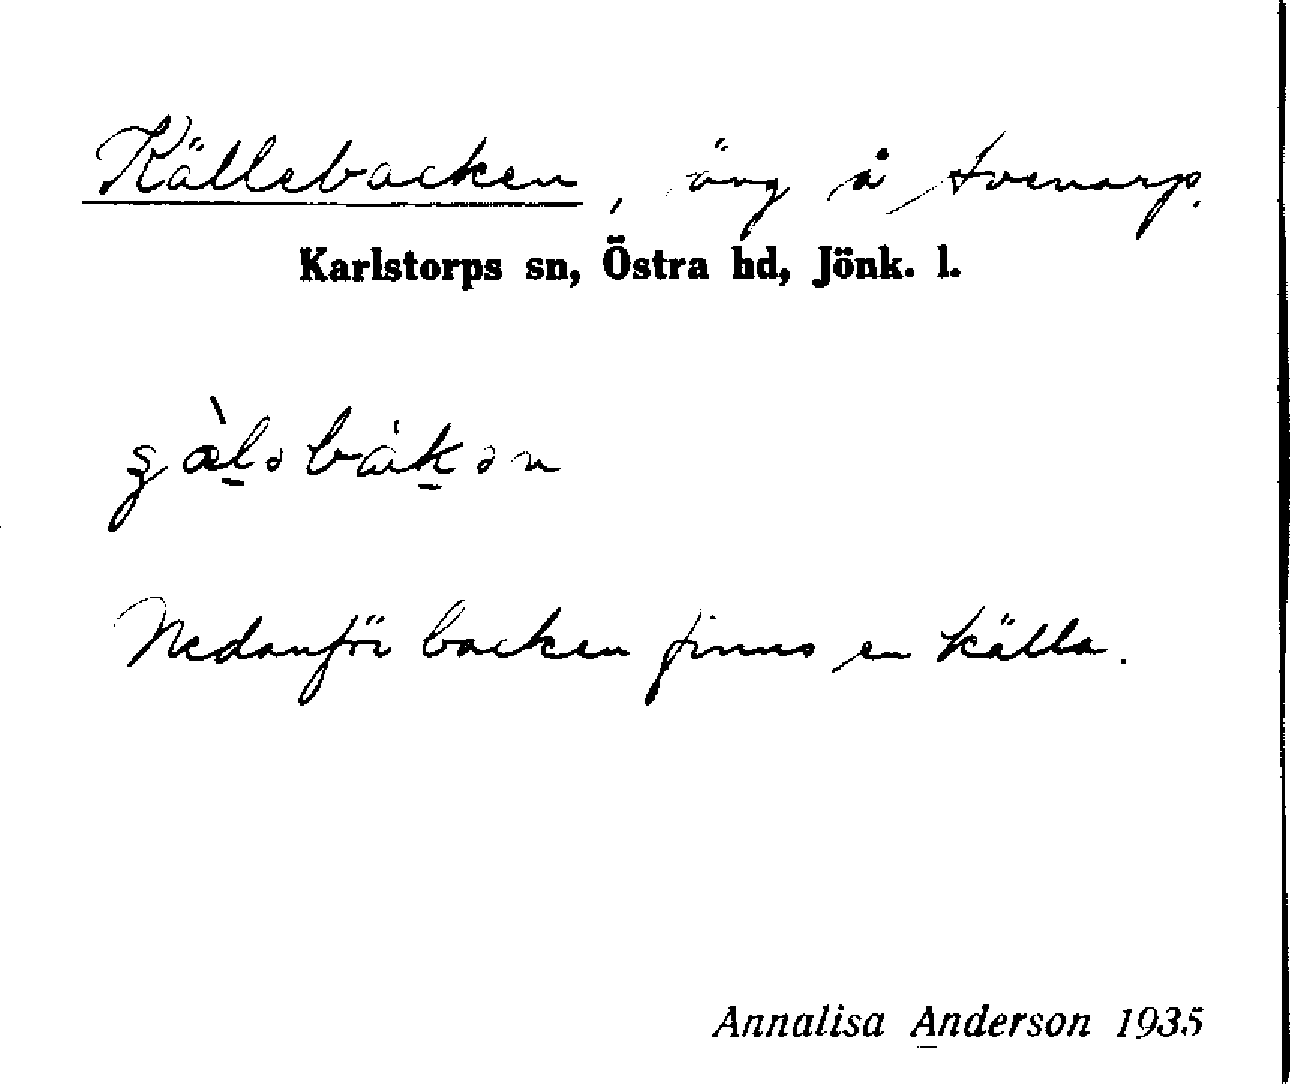 Källebacken, äng å Svenarp.
Karlstorps sn, Östra hd, Jönk. l.
Nedanför backen finns en källa.
Annalisa Anderson 1935